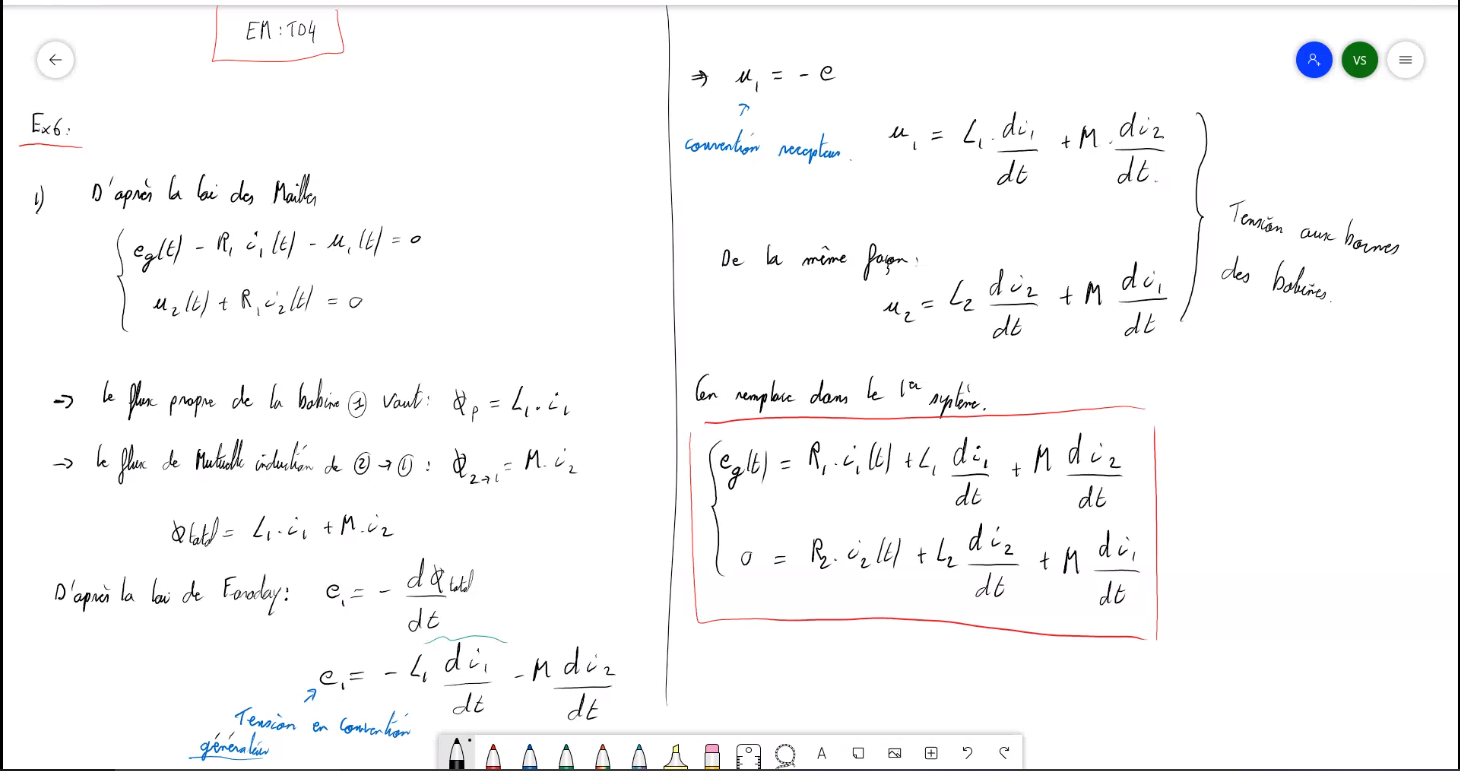 EM : TD4
Ex6 :
1) D'après la loi des Mailles
eg(t) - R₁ i₁(t) - u₁(t) = 0
u₂(t) + R₁ i₂(t) = 0
→ le flux propre de la bobine ① vaut : Φp = L₁ . i₁
→ le flux de Mutuelle induction de ② → ① : Φ₂→₁ = M . i₂
Φtotal = L₁ . i₁ + M . i₂
D'après la loi de Faraday : e₁ = - dΦtotal/dt
e₁ = - L₁ di₁/dt - M di₂/dt
Tension en convention
générateur
⇒ u₁ = - e
convention recepteur.
u₁ = L₁ . di₁/dt + M . di₂/dt.
De la même façon :
u₂ = L₂ di₂/dt + M di₁/dt
Tension aux bornes
des bobines.
On remplace dans le 1er système.
eg(t) = R₁ . i₁(t) + L₁ di₁/dt + M di₂/dt
0 = R₂ . i₂(t) + L₂ di₂/dt + M di₁/dt
VS
A